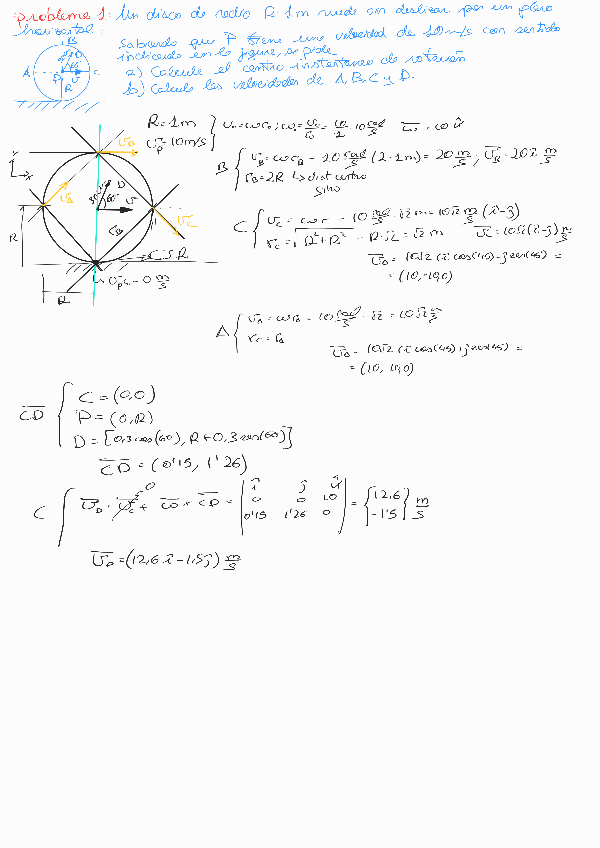 Problema 1: Un disco de radio R=1m rueda sin deslizar por un plano
horizontal.
Sabiendo que P tiene una velocidad de 10m/s con sentido
indicado en la figura, se pide
a) Calcule el centro instantáneo de rotación
b) Calcule las velocidades de A, B, C y D.
B
D
A
C
P
v
R
R=1m
v_P=10m/s
B { v_B = ω r_B = 10 rad/s (2·1m) = 20 m/s, v_B = 20 i m/s
r_B=2R ↳ dist centro
giro
C { v_C = ω r = 10 rad/s · √2 m = 10√2 m/s (i-j)
r_C = √R²+R² = R·√2 = √2 m
v_C = 10√2 (i cos(45) - j sen(45)) =
= (10,-10,0)
A { v_A = ω r_A = 10 rad/s · √2 = 10√2 m/s
r_C = r_A
= 10√2 (i cos(45)+j sen(45)) =
= (10, 10,0)
CD { C = (0,0)
P = (0,R)
D = [0,3 cos(60), R+0,3 sen(60)]
CD = (0'15, 1'26)
C { v_D = v_C + ω × CD = | i j k |
0 0 10
0'15 1'26 0
= { 12,6
-1'5 } m/s
v_D = (12,6 i - 1,5 j) m/s